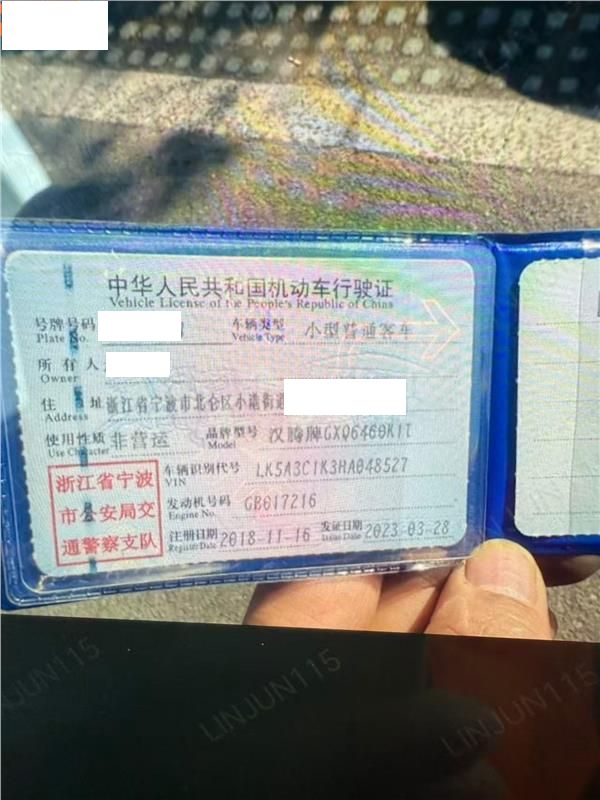 中华人民共和国机动车行驶证
Vehicle License of the People's Republic of China
号牌号码 车辆类型 小型普通客车
Plate No. Vehicle Type
所有人
Owner
住址 浙江省宁波市北仑区小港街道
Address
使用性质 非营运 品牌型号 汉腾牌GXQ6460K1T
Use Character Model
浙江省宁波
市公安局交
通警察支队
车辆识别代号 LK5A3C1K3HA048527
VIN
发动机号码 GB017216
Engine No.
注册日期 2018-11-16 发证日期 2023-03-28
Register Date Issue Date
LINJUN115
LINJUN115
LINJUN115